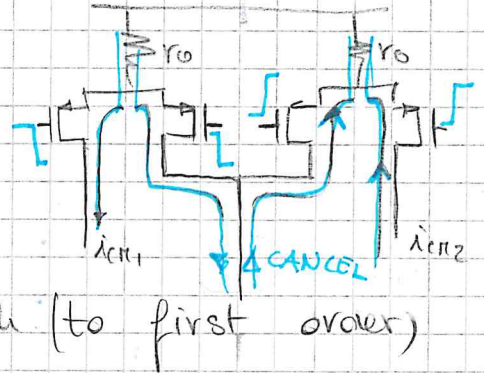 r₀ r₀
i_CM1 CANCEL i_CM2
(to first order)